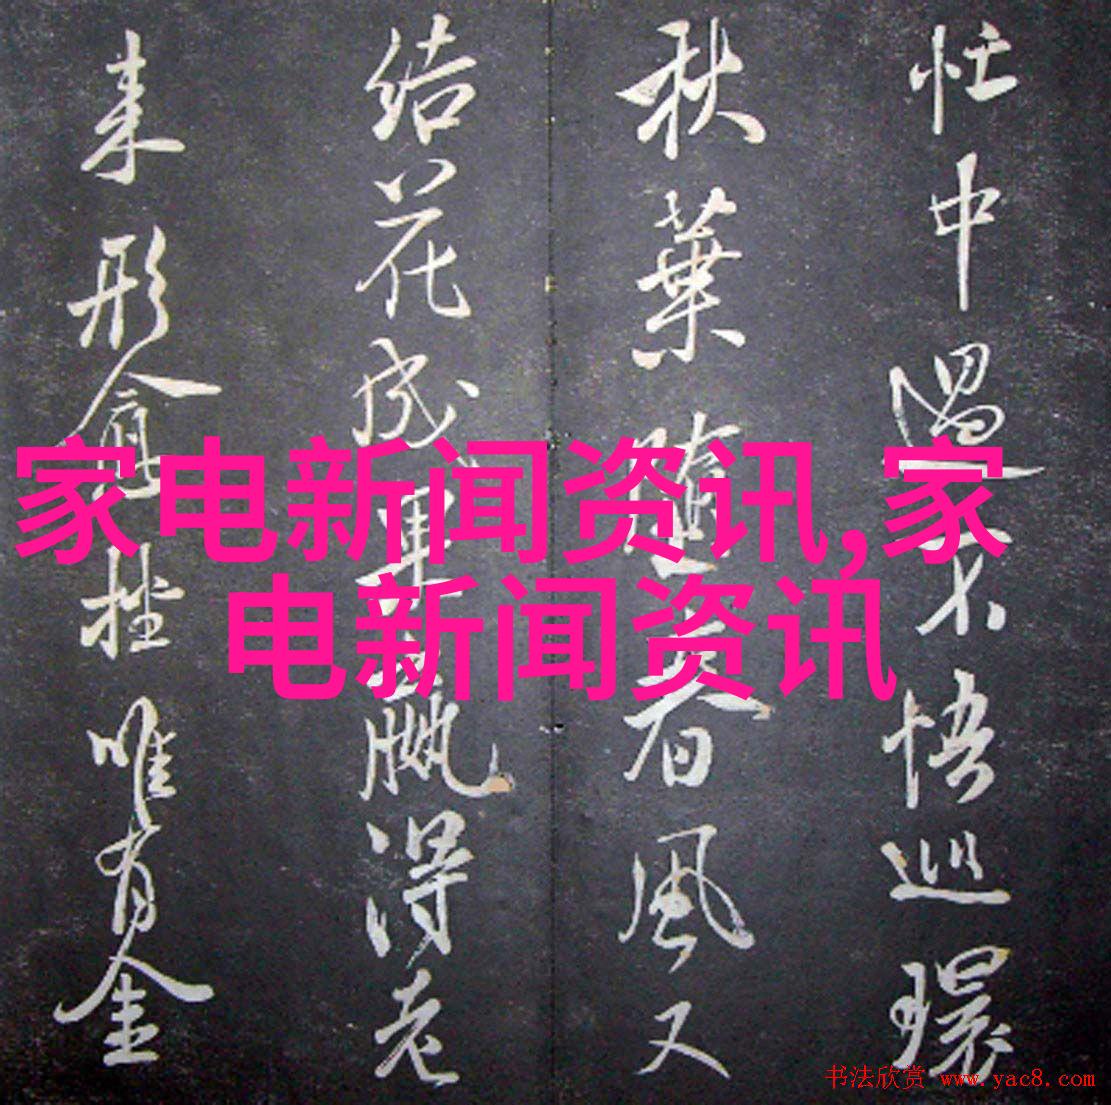 忙中不悟巡環
秋葉隨春風又
結花成果羸得老
来形唯有金
家电新闻资讯,家
电新闻资讯
书法欣赏 www.yac8.com